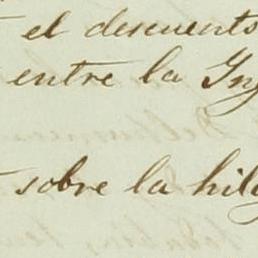 el descuento
entre la Ing
sobre la hila